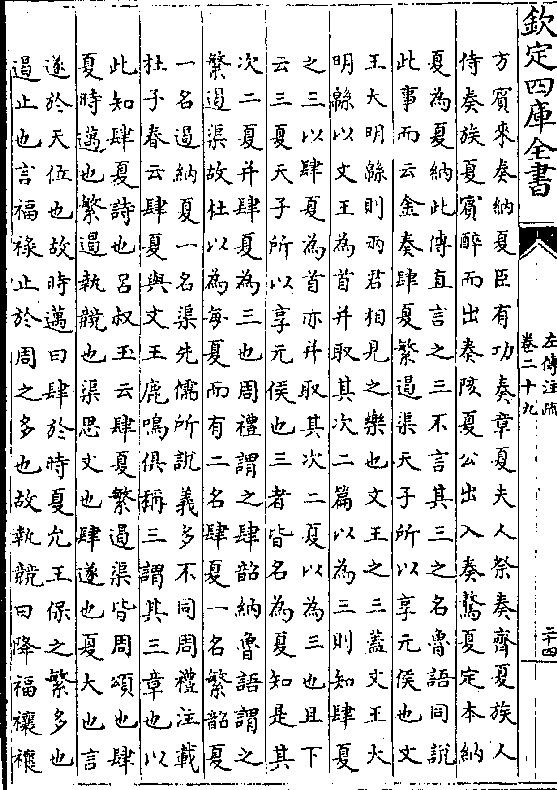 欽定四庫全書
左傳注疏
卷二十九
二十四
方賓來奏納夏臣有功奏章夏夫人祭奏齊夏族人
侍奏族夏賓醉而出奏陔夏公出入奏驁夏定本納
夏為夏納此傳直言之三不言其三之名魯語同說
此事而云金奏肆夏繁遏渠天子所以享元侯也文
王大明緜則兩君相見之樂也文王之三蓋文王大
明緜以文王為首并取其次二篇以為三則知肆夏
之三以肆夏為首亦并取其次二夏以為三也且下
云三夏天子所以享元侯也三者皆名為夏知是其
次二夏并肆夏為三也周禮謂之肆韶納魯語謂之
繁遏渠故杜以為每夏而有二名肆夏一名繁韶夏
一名遏納夏一名渠先儒所說義多不同周禮注載
杜子春云肆夏與文王鹿鳴俱稱三謂其三章也以
此知肆夏詩也呂叔玉云肆夏繁遏渠皆周頌也肆
夏時邁也繁遏執競也渠思文也肆遂也夏大也言
遂於天位也故時邁曰肆於時夏允王保之繁多也
遏止也言福祿止於周之多也故執競曰降福穰穰